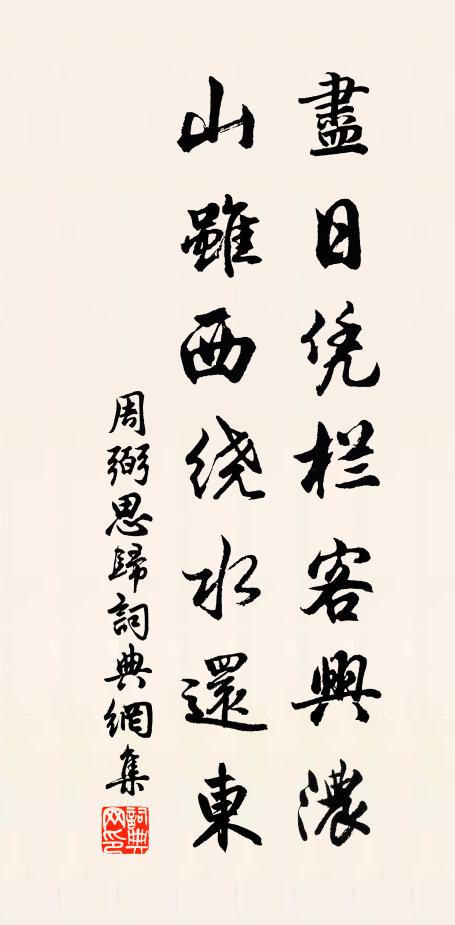 盡日凭栏客興濃
山雖西绕水還東
周弼思歸詞典網集
詞典网印